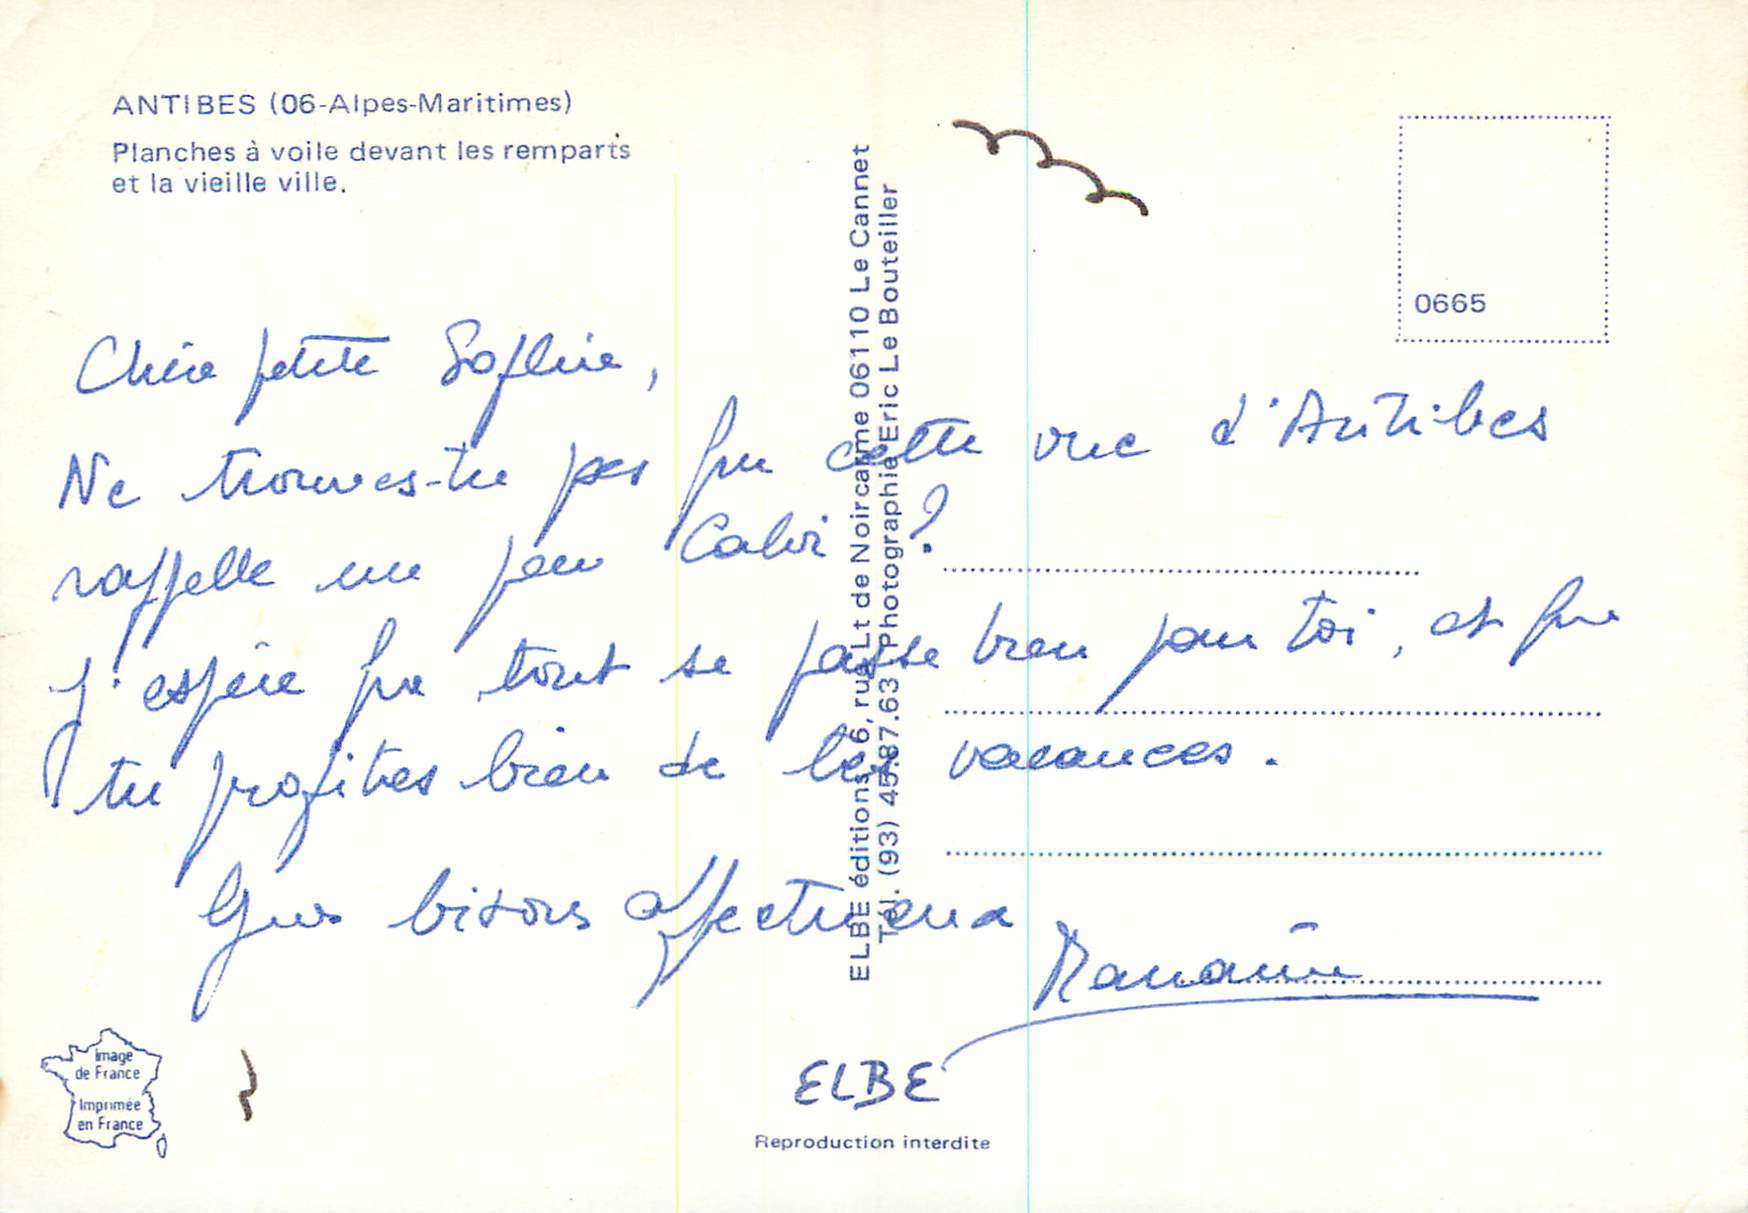 ANTIBES (06-Alpes-Maritimes)
Planches à voile devant les remparts
et la vieille ville.
ELBE éditions, 6, rue Lt de Noircarme 06110 Le Cannet
Tél. (93) 45.87.63 Photographie Eric Le Bouteiller
0665
Chère petite Sophie,
Ne trouves-tu pas que cette vue d'Antibes
rappelle un peu Calvi ?
J'espère que tout se passe bien pour toi, et que
tu profites bien de tes vacances.
Gros bisous affectueux
Image
de France
Imprimée
en France
ELBE
Reproduction interdite